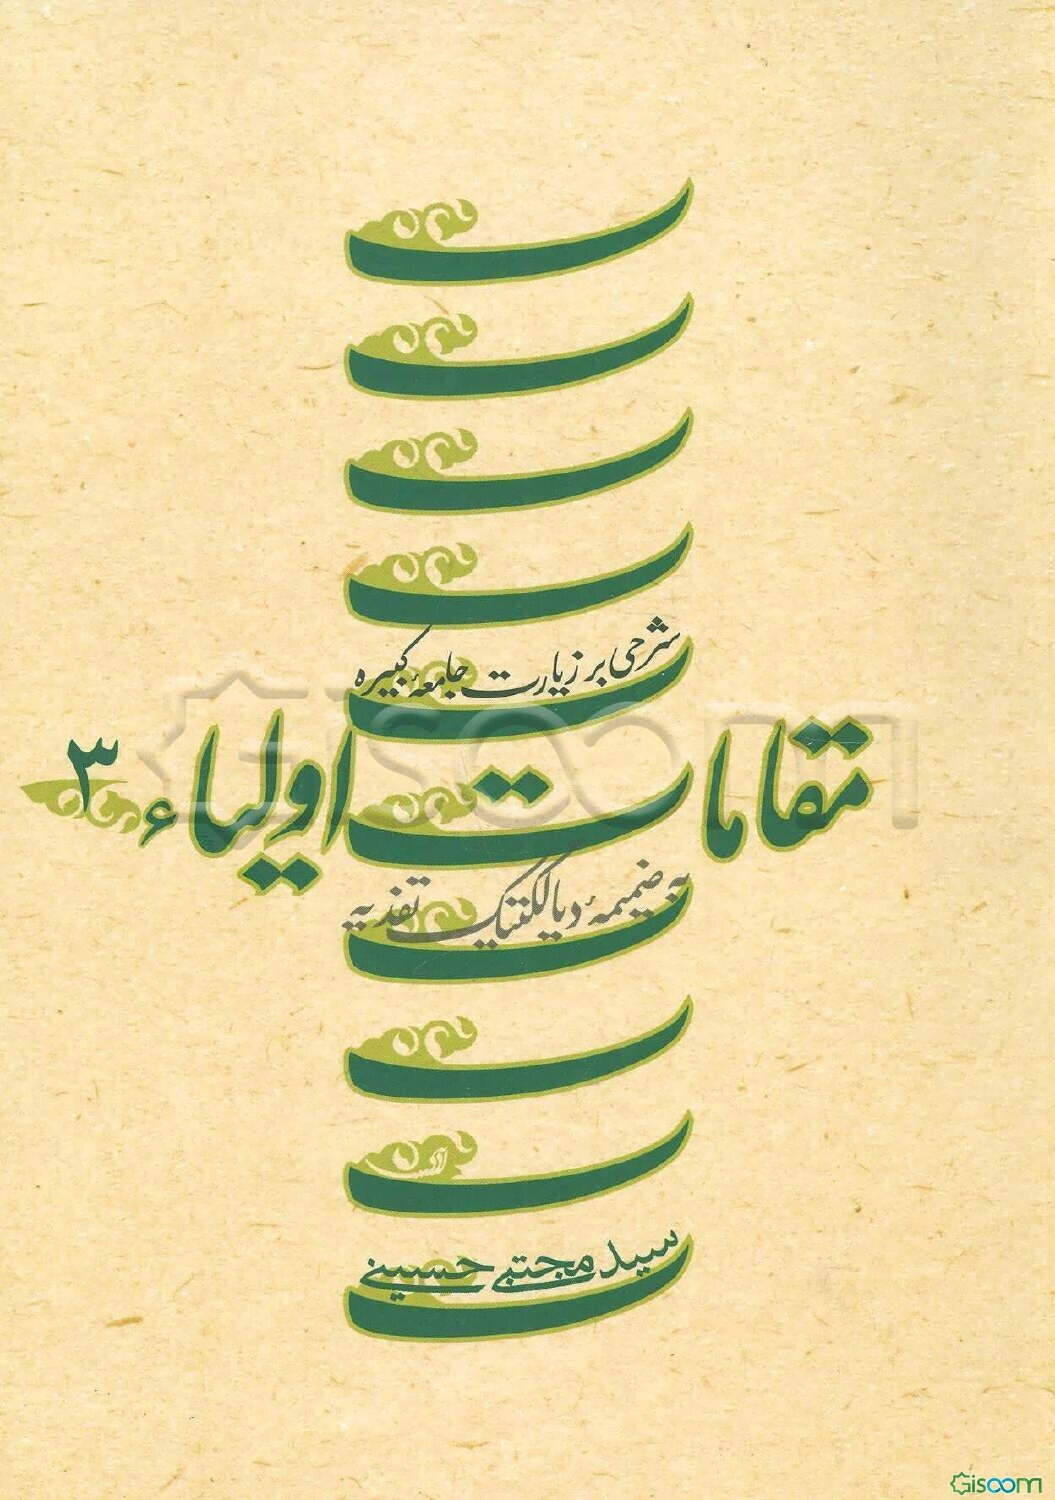 شرحی بر زیارت جامعهٔ کبیره
مقامات اولیاء ۳
به ضمیمهٔ دیالکتیک تغذیه
سید مجتبی حسینی
Gisoom
Gisoom